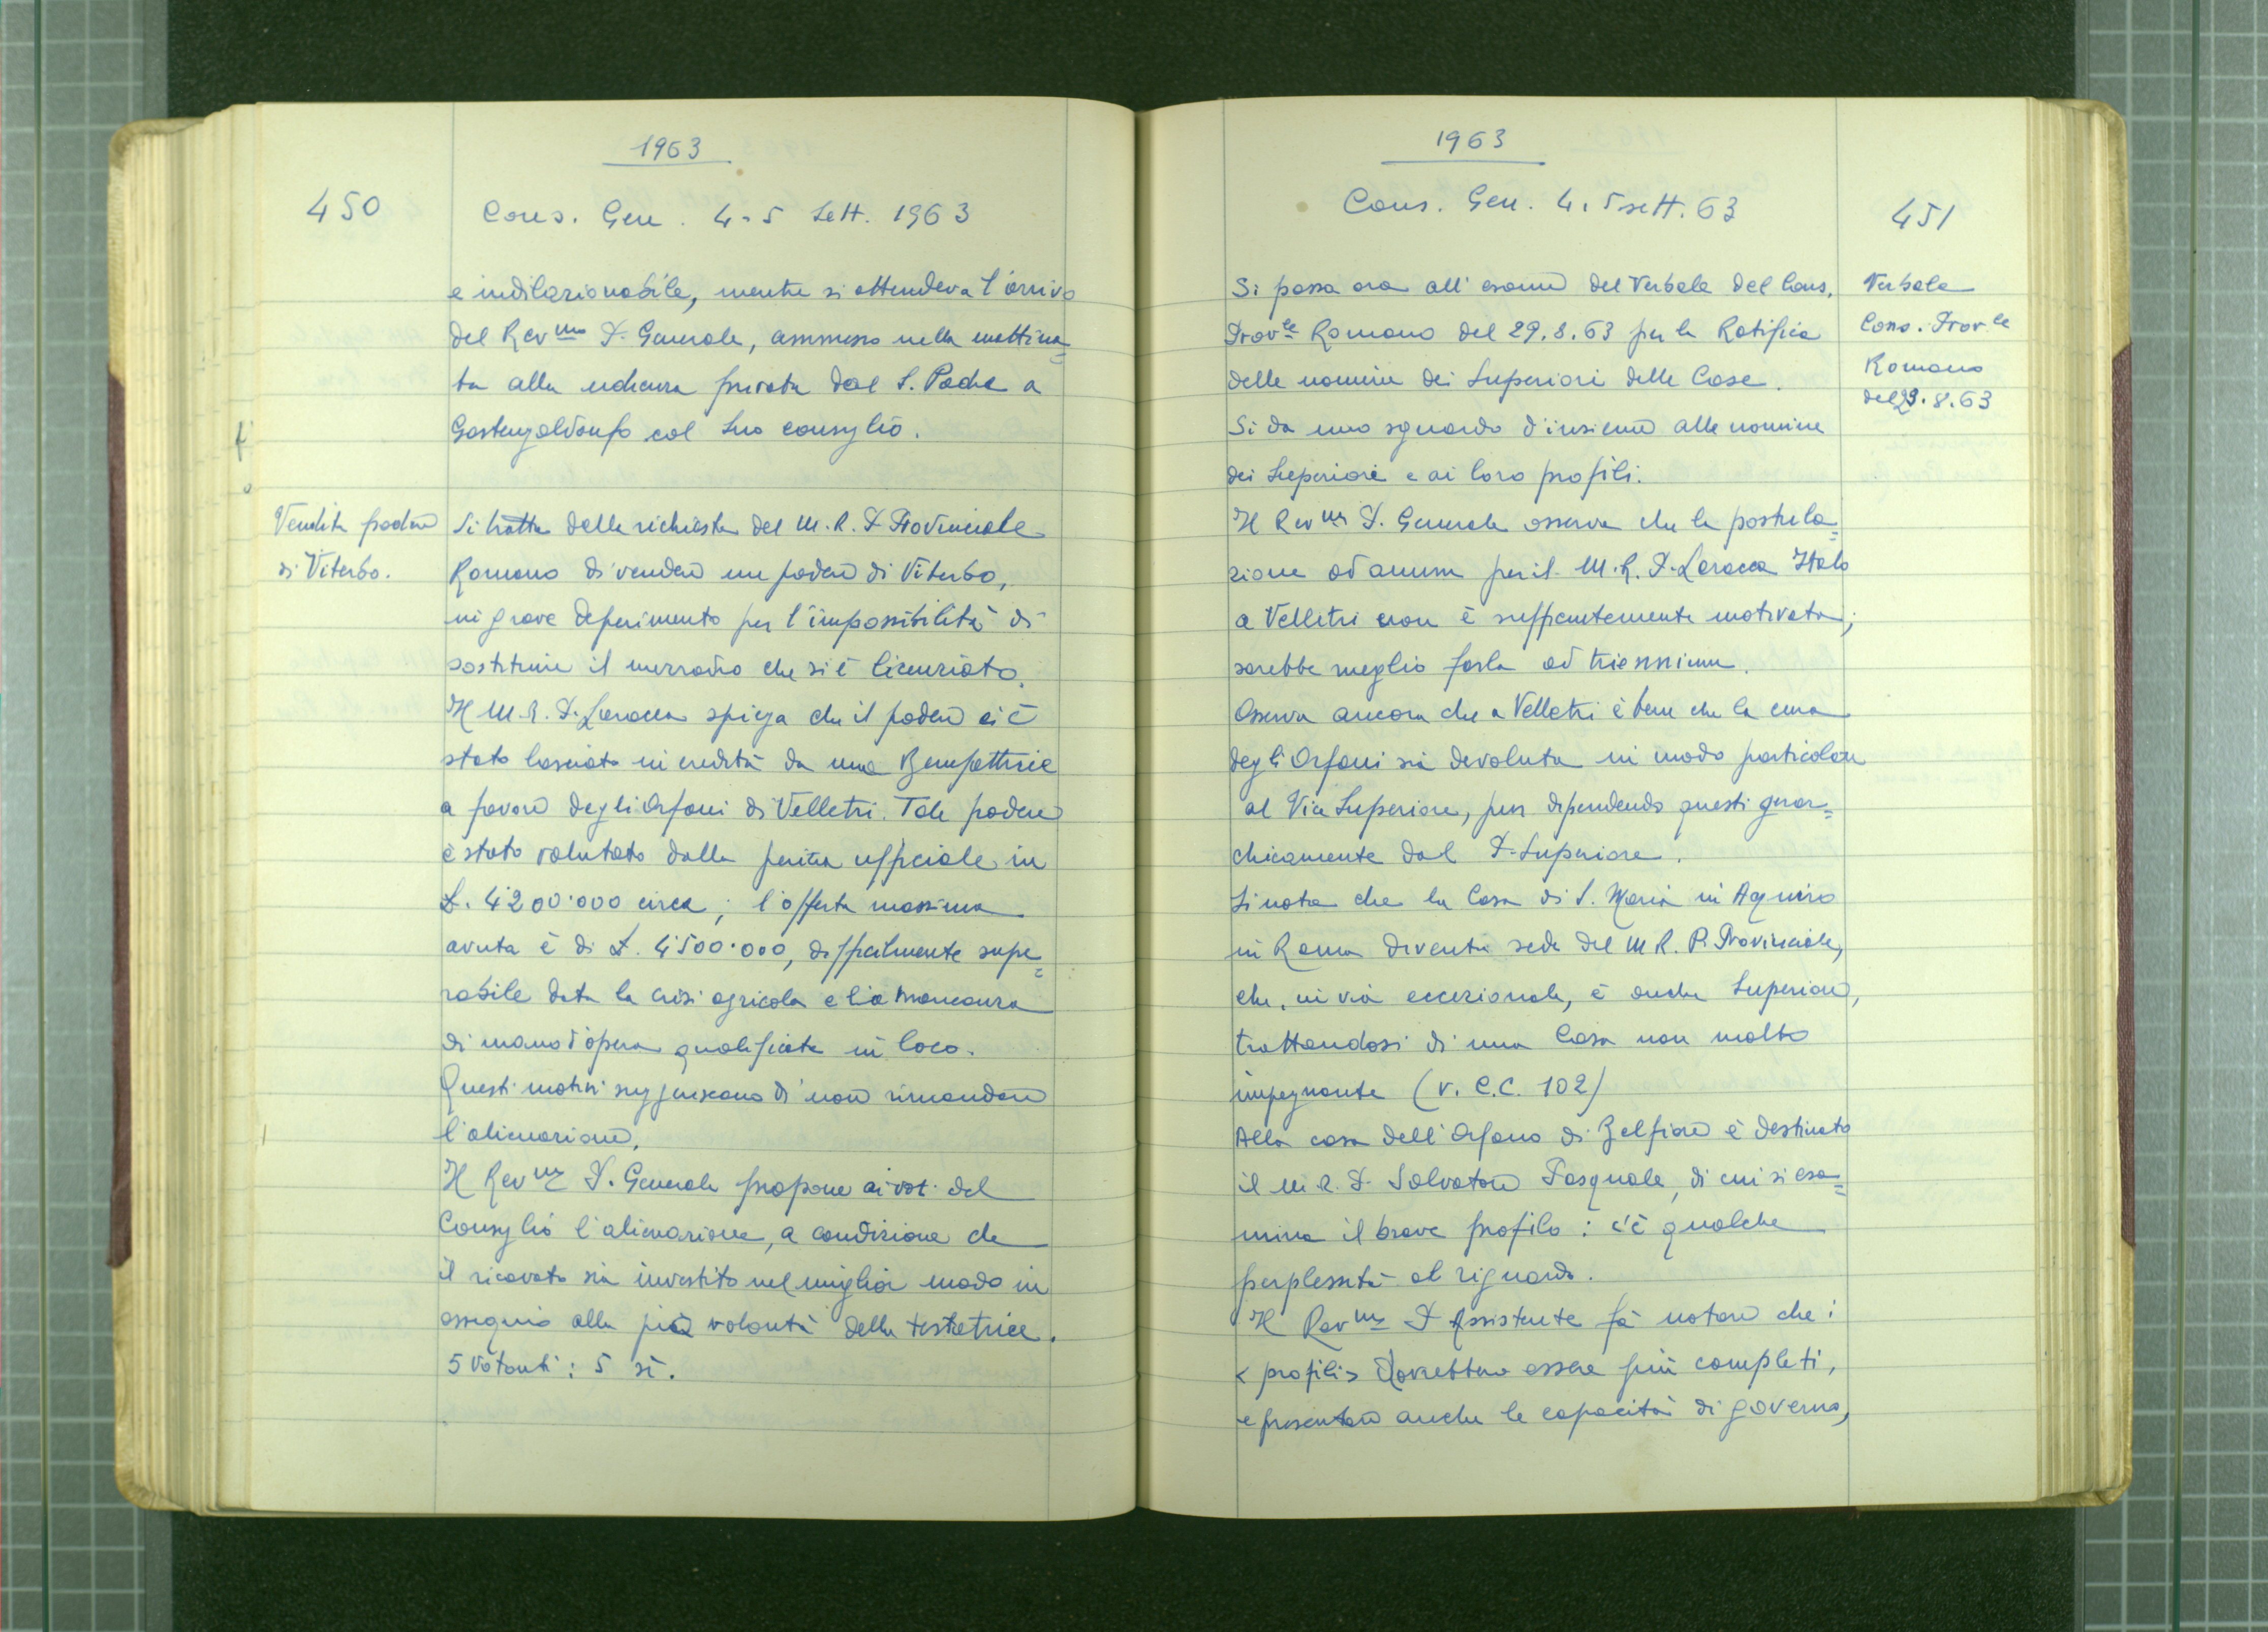 1963
450
Cons. Gen. 4-5 Sett. 1963
e indilazionabile, mentre si attendeva l'arrivo
del Rev.mo P. Generale, ammesso nella mattina=
ta alla udienza privata dal S. Padre a
Castengaldonfo col Suo consiglio.
Vendita podere
di Viterbo.
Si tratta della richiesta del M. R. P. Provinciale
Romano di vendere un podere di Viterbo,
in grave deperimento per l'impossibilità di
sostituire il mezzadro che si è licenziato.
Il M. R. P. Laracca spiega che il podere ci è
stato lasciato in eredità da una Benefattrice
a favore degli Orfani di Velletri. Tale podere
è stato valutato dalla perizia ufficiale in
£. 4'200'000 circa; l'offerta massima
avuta è di £. 4'500'000, difficilmente supe=
rabile data la crisi agricola e la mancanza
di mano d'opera qualificata in loco.
Questi motivi suggeriscono di non rimandare
l'alienazione.
Il Rev.mo P. Generale propone ai voti del
Consiglio l'alienazione, a condizione che
il ricavato sia investito nel miglior modo in
ossequio alla pia volontà della testatrice.
5 votanti: 5 sì.
1963
Cons. Gen. 4.5 sett. 63
451
Si passa ora all'esame del Verbale del Cons.
Prov.le Romano del 29.8.63 per la Ratifica
delle nomine dei Superiori delle Case.
Verbale
Cons. Prov.le
Romano
del 29.8.63
Si da uno sguardo d'insieme alle nomine
dei Superiori e ai loro profili.
Il Rev.mo P. Generale osserva che la postula=
zione ad annum per il M. R. P. Laracca Italo
a Velletri non è sufficientemente motivata;
sarebbe meglio farla ad triennium.
Osserva ancora che a Velletri è bene che la cura
degli Orfani sia devoluta in modo particolare
al Vice Superiore, pur dipendendo questi gerar=
chicamente dal P. Superiore.
Si nota che la Casa di S. Maria in Aquiro
in Roma diventa sede del M. R. P. Provinciale,
che, in via eccezionale, è anche Superiore,
trattandosi di una Casa non molto
impegnante (v. C.C. 102)
Alla casa dell'Orfano di Belfiore è destinato
il M. R. P. Salvatore Pasquale, di cui si esa=
mina il breve profilo: c'è qualche
perplessità al riguardo.
Il Rev.mo P. Assistente fa notare che i
< profili > dovrebbero essere più completi,
e presentare anche le capacità di governo,